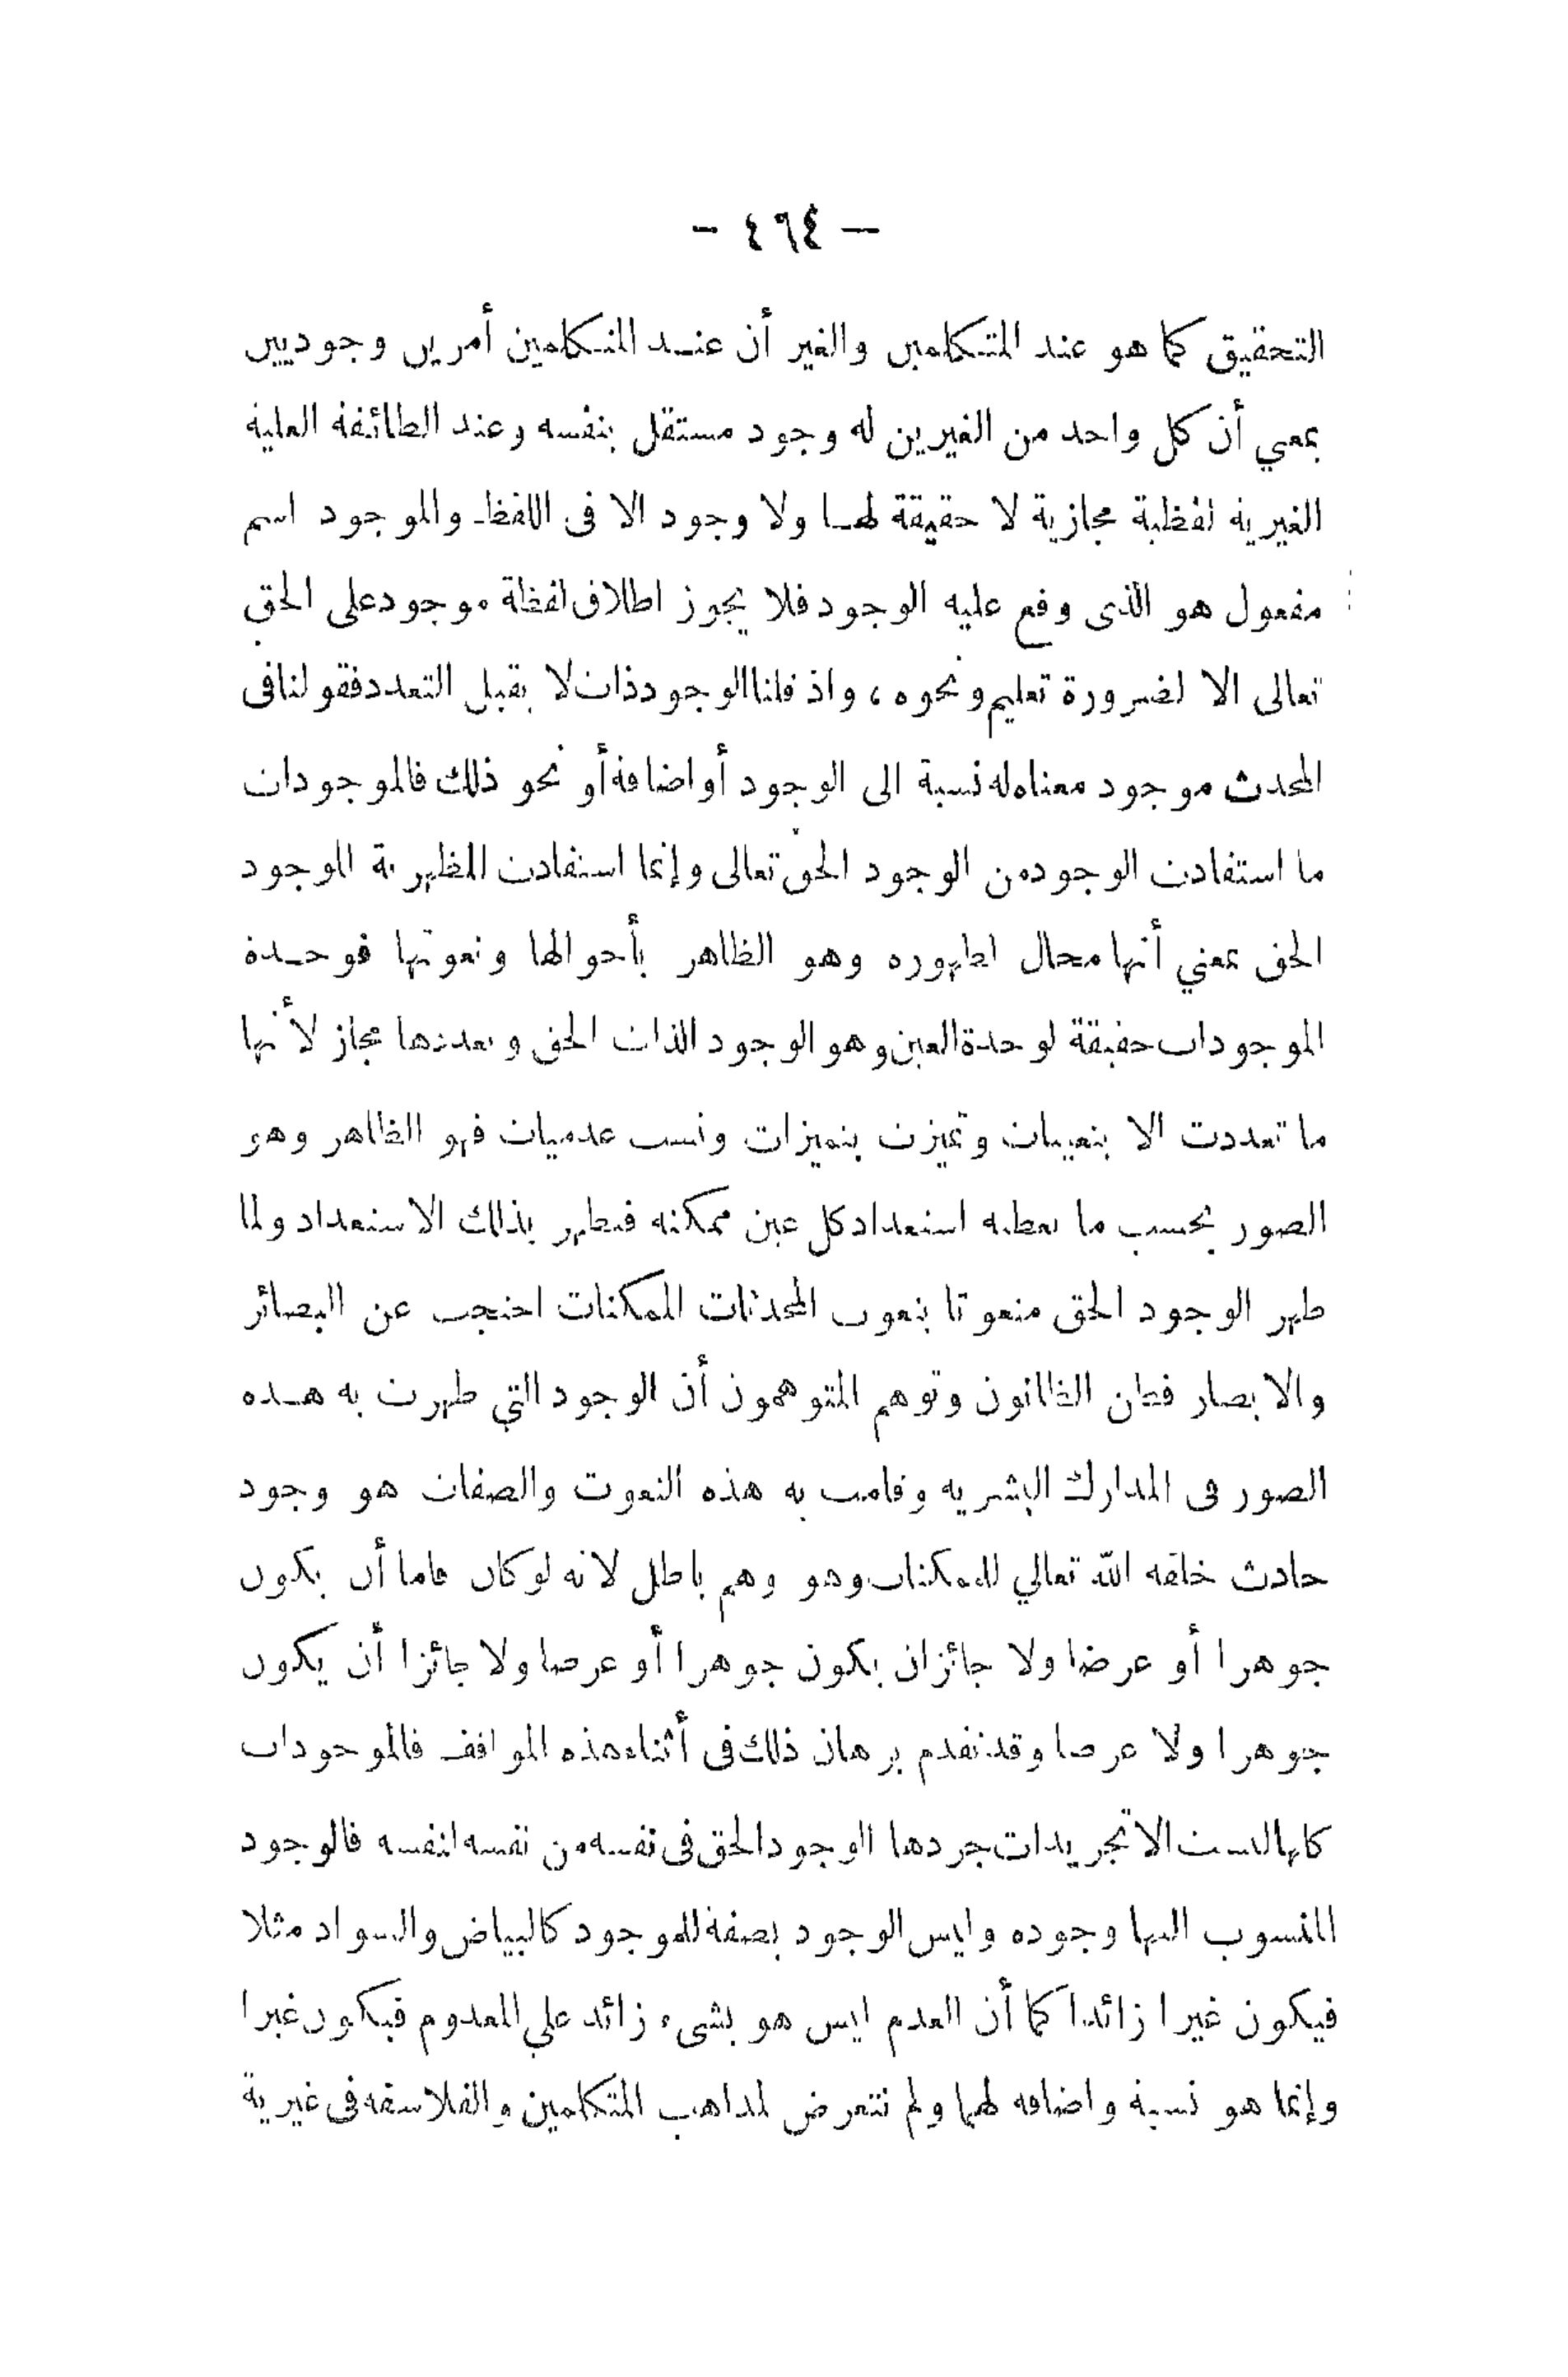 — ٤٦٤ —
التحقيق كما هو عند المتكلمين والغير أن عند المتكلمين أمرين وجوديين
بمعني أن كل واحد من الغيرين له وجود مستقل بنفسه وعند الطائفة العلية
الغيرية لفظية مجازية لا حقيقة لها ولا وجود الا فى اللفظ والموجود اسم
مفعول هو الذى وقع عليه الوجود فلا يجوز اطلاق لفظة موجود على الحق
تعالى الا لضرورة تعليم ونحوه ، واذ قلنا الوجود ذات لا يقبل التعدد فقولنا فى
المحدث موجود معناه له نسبة الى الوجود أو اضافة أو نحو ذلك فالموجودات
ما استفادت الوجود من الوجود الحق تعالى وإنما استفادت المظهرية للوجود
الحق بمعني أنها محال لظهوره وهو الظاهر بأحوالها ونعوتها فوحدة
الموجودات حقيقة لوحدة العين وهو الوجود الذات الحق وتعددها مجاز لأنها
ما تعددت الا بتعيينات وتميزت بتميزات ونسب عدميات فهو الظاهر وهو
الصور بحسب ما تعطيه استعداد كل عين ممكنه فيظهر بذلك الاستعداد ولما
ظهر الوجود الحق منعوتا بنعوت المحدثات الممكنات احتجب عن البصائر
والابصار فظن الظانون وتوهم المتوهمون أن الوجود التي ظهرت به هذه
الصور فى المدارك البشريه وقامت به هذه النعوت والصفات هو وجود
حادث خلقه الله تعالي للممكنات وهو وهم باطل لانه لو كان فاما أن يكون
جوهرا أو عرضا ولا جائزان يكون جوهرا أو عرضا ولا جائزا أن يكون
جوهرا ولا عرضا وقد تقدم برهان ذلك فى أثناء هذه المواقف فالموجودات
كلها ليست الا تجريدات جردها الوجود الحق فى نفسه من نفسه لنفسه فالوجود
المنسوب اليها وجوده وليس الوجود بصفة للموجود كالبياض والسواد مثلا
فيكون غيرا زائدا كما أن العدم ليس هو بشىء زائد علي المعدوم فيكون غيرا
وإنما هو نسبة واضافه لهما ولم نتعرض لمذاهب المتكلمين والفلاسفه فى غيرية